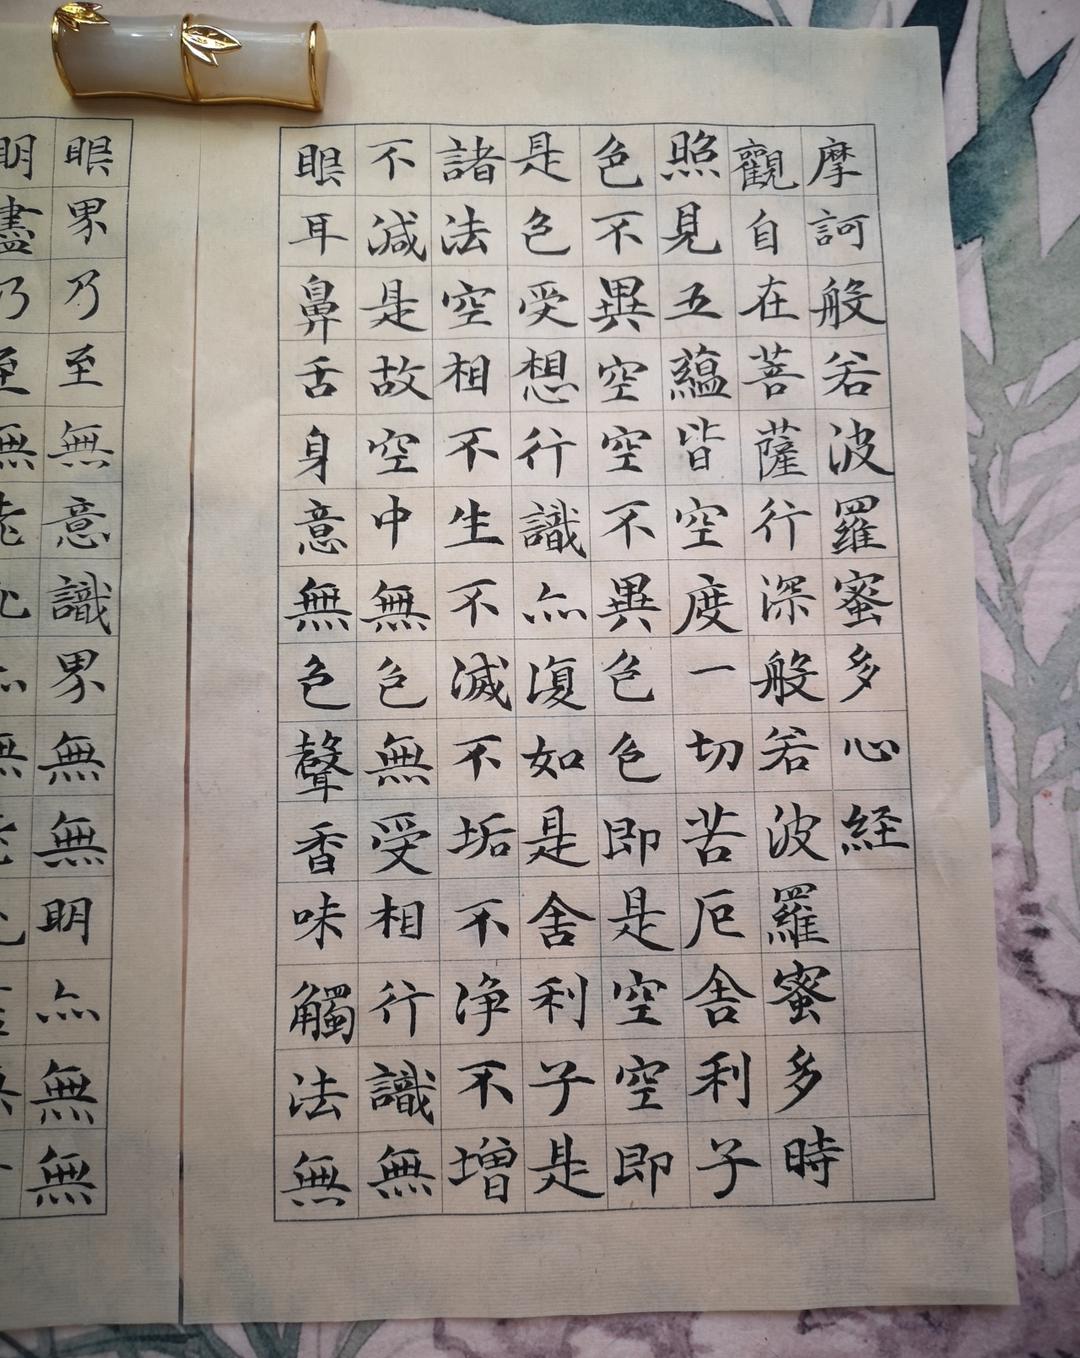 摩訶般若波羅蜜多心経
觀自在菩薩行深般若波羅蜜多時
照見五蘊皆空度一切苦厄舍利子
色不異空空不異色色即是空空即
是色受想行識亦復如是舍利子是
諸法空相不生不滅不垢不净不增
不減是故空中無色無受相行識無
眼耳鼻舌身意無色聲香味觸法無
眼界乃至無意識界無無明亦無無
明盡乃至無